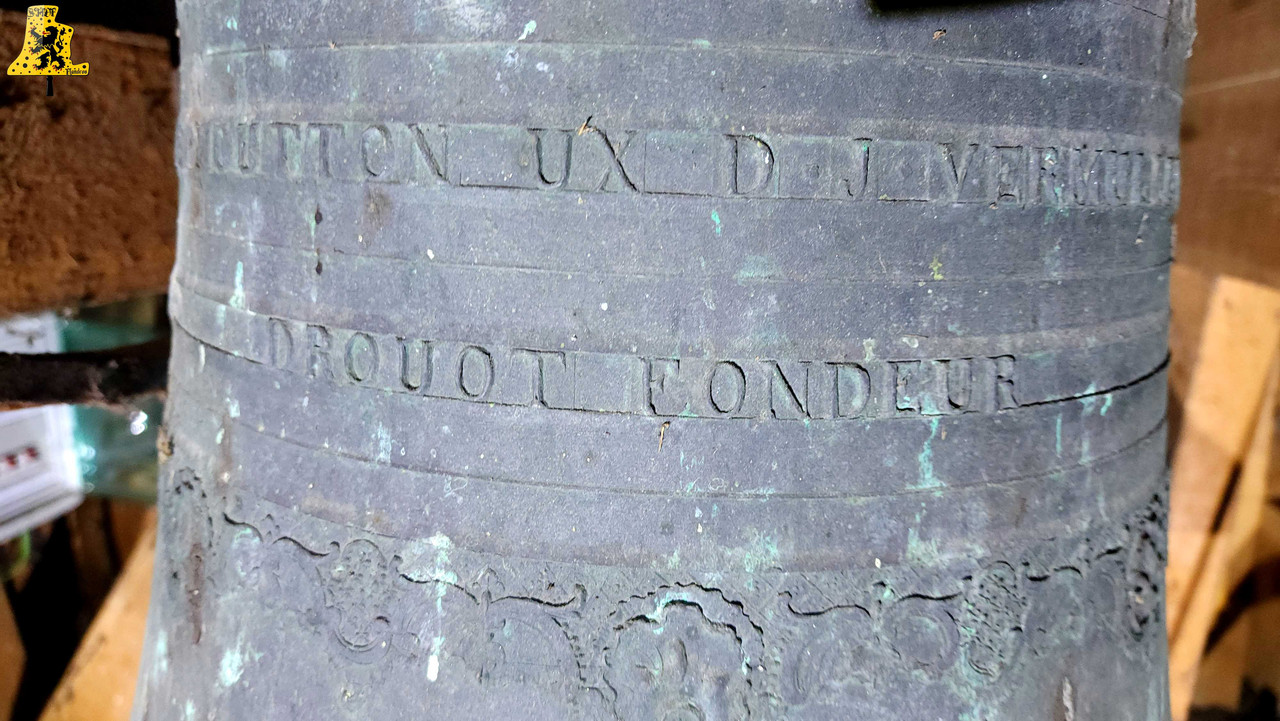 OUTTON UX D · J · VERMEULE
DROUOT FONDEUR